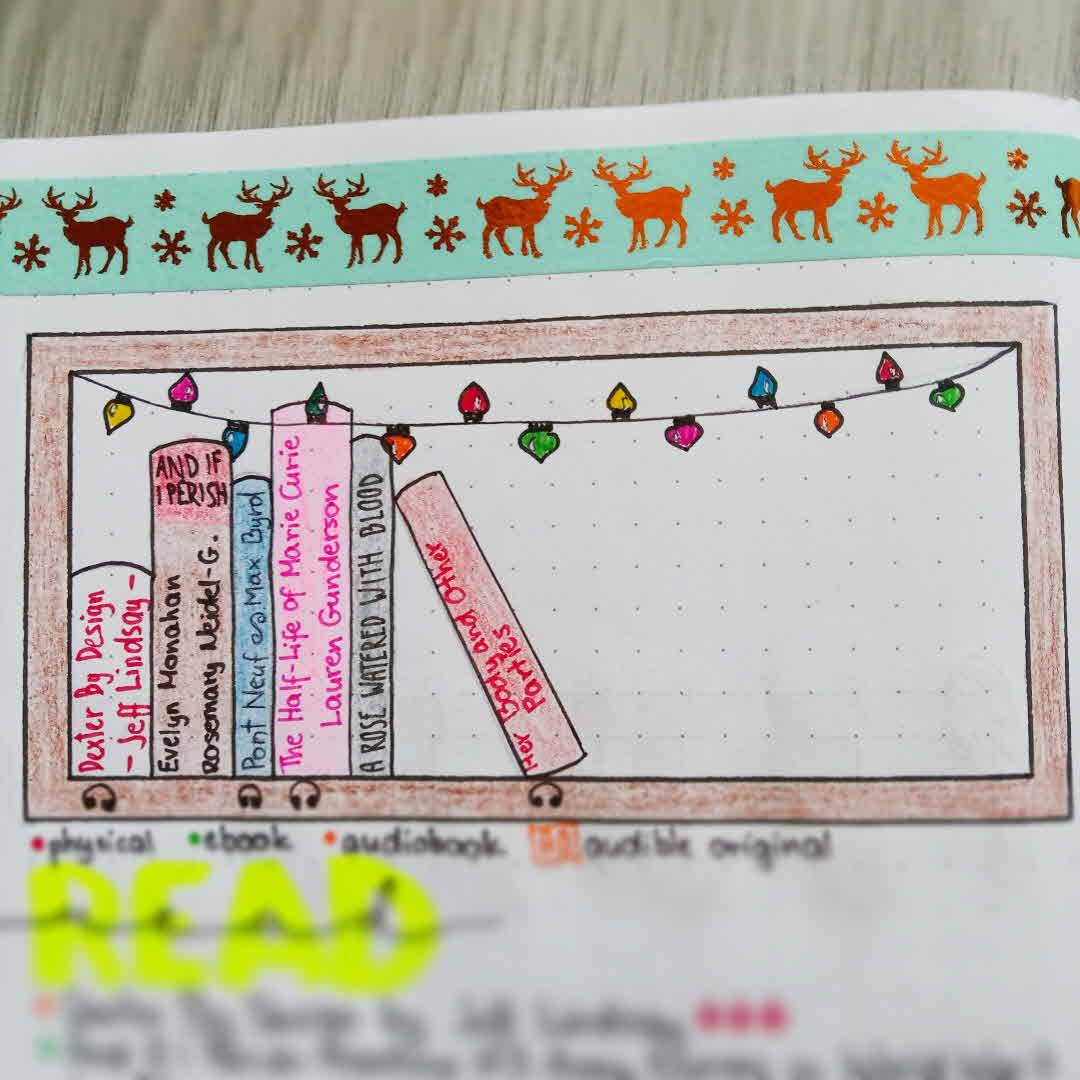 Dexter By Design
- Jeff Lindsay -
AND IF
I PERISH
Evelyn Monahan
Rosemary Neidel-G.
Pont Neuf Max Byrd
The Half-Life of Marie Curie
Lauren Gunderson
A ROSE WATERED WITH BLOOD
Her Body and Other
Parties
physical ebook audiobook audible original
READ